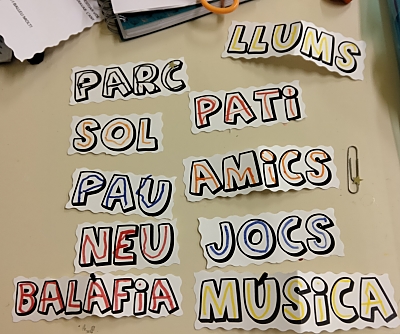 LLUMS
PARC
PATi
SOL
AMiCS
PAU
NEU
JOCS
BALÀFiA
MÚSiCA